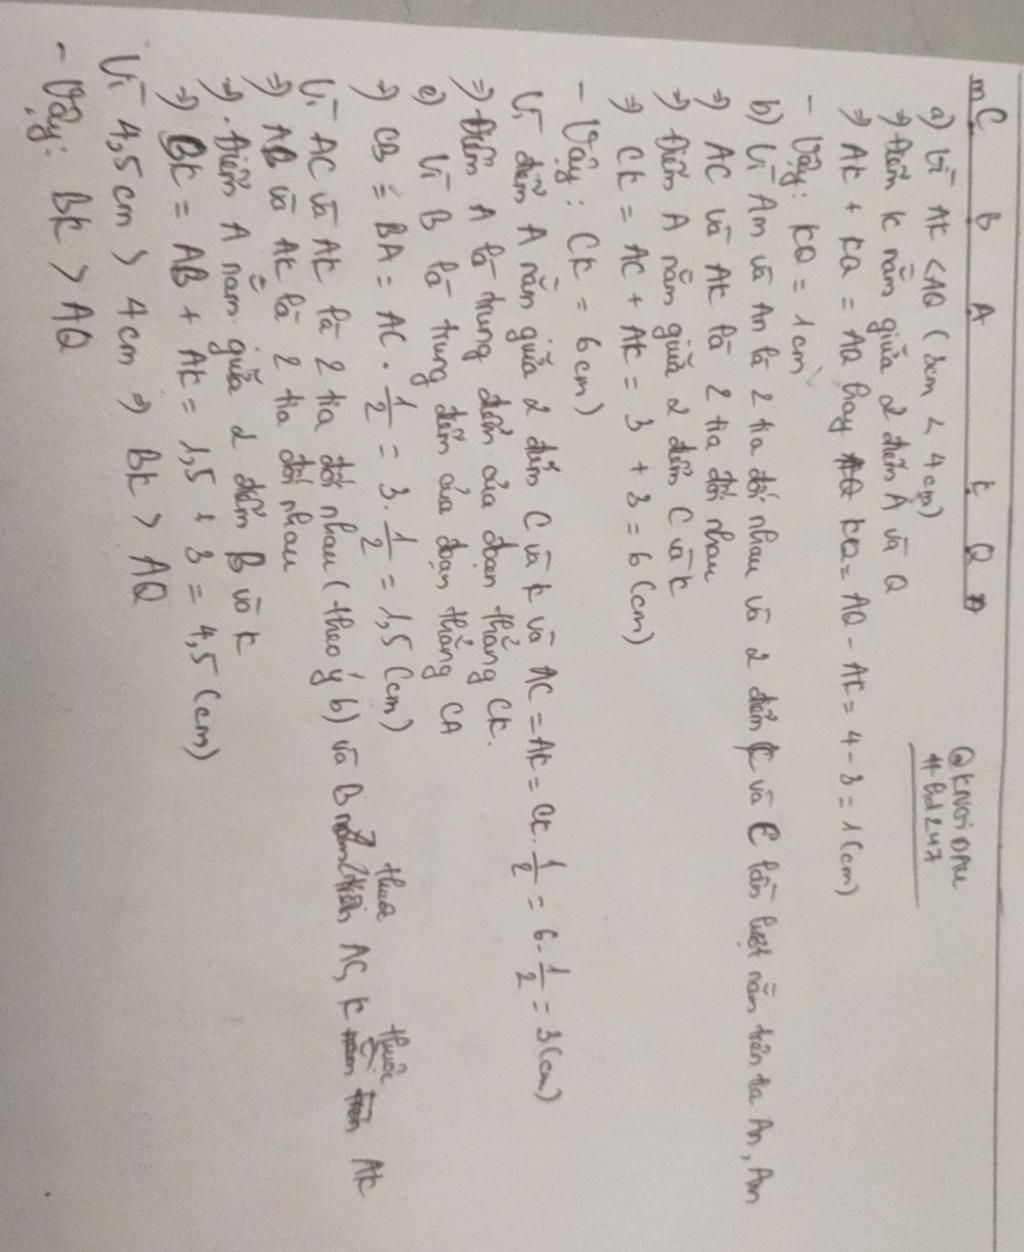 m C B A K Q n
@KNOIDAU
# Bd247
a) Vì AK < AQ (3cm < 4cm)
⇒ Điểm K nằm giữa 2 điểm A và Q
⇒ AK + KQ = AQ hay KQ = AQ - AK = 4 - 3 = 1 (cm)
- Vậy: KQ = 1cm
b) Vì Am và An là 2 tia đối nhau và 2 điểm K và C lần lượt nằm trên tia An, Am
⇒ AC và AK là 2 tia đối nhau
⇒ Điểm A nằm giữa 2 điểm C và K
⇒ CK = AC + AK = 3 + 3 = 6 (cm)
- Vậy: CK = 6cm)
Vì điểm A nằm giữa 2 điểm C và K và AC = AK = CK . 1/2 = 6 . 1/2 = 3 (cm)
⇒ Điểm A là trung điểm của đoạn thẳng CK.
c) Vì B là trung điểm của đoạn thẳng CA
⇒ CB = BA = AC . 1/2 = 3 . 1/2 = 1,5 (cm)
Vì AC và AK là 2 tia đối nhau (theo ý b) và B thuộc AC, K thuộc AK
⇒ AB và AK là 2 tia đối nhau
⇒ Điểm A nằm giữa 2 điểm B và K
⇒ BK = AB + AK = 1,5 + 3 = 4,5 (cm)
Vì 4,5cm > 4cm ⇒ BK > AQ
- Vậy: BK > AQ